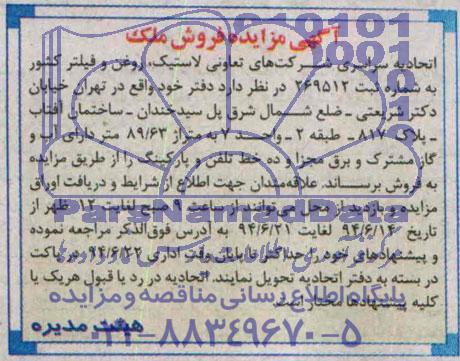 آگهی مزایده فروش ملک
اتحادیه سراسری شرکت‌های تعاونی لاستیک، روغن و فیلتر کشور
به شماره ثبت ۲۶۹۵۱۲ در نظر دارد دفتر خود واقع در تهران خیابان
دکتر شریعتی - ضلع شمال شرق پل سیدخندان - ساختمان آفتاب
- پلاک ۸۱۷ - طبقه ۲ - واحد ۷ به متراژ ۸۹/۶۳ متر دارای آب و
گاز مشترک و برق مجزا و ده خط تلفن و پارکینگ را از طریق مزایده
به فروش برساند. علاقه‌مندان جهت اطلاع از شرایط و دریافت اوراق
مزایده و بازدید از محل می‌توانند از ساعت ۹ صبح لغایت ۱۲ ظهر از
تاریخ ۹۴/۶/۱۴ لغایت ۹۴/۶/۲۱ به آدرس فوق‌الذکر مراجعه نموده
و پیشنهادهای خود را حداکثر تا پایان وقت اداری ۹۴/۶/۲۲ در پاکت
در بسته به دفتر اتحادیه تحویل نمایند. اتحادیه در رد یا قبول هریک یا
کلیه پیشنهادها مختار است.
هیئت مدیره
ParsNamadData
پایگاه اطلاع رسانی مناقصه و مزایده
۰۲۱-۸۸۳۴۹۶۷۰-۵